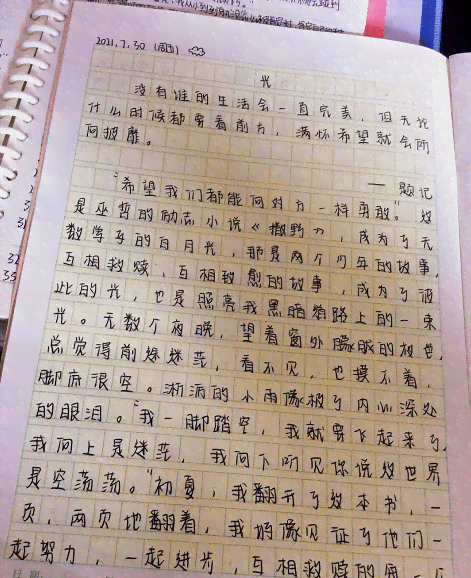 2021.7.30 (周五)
光
没有谁的生活会一直完美，但无论
什么时候都要看前方，满怀希望就会所
向披靡。
——题记
“希望我们都能向对方一样勇敢。”这
是巫哲的励志小说《撒野》，成为了无
数学子的白月光，那是两个少年的故事，
互相救赎，互相致愈的故事，成为了彼
此的光，也是照亮我黑暗道路上的一束
光。无数个夜晚，望着窗外朦胧的夜色
总觉得前途迷茫，看不见，也摸不着，
脚底很空。淅沥的小雨像极了内心深处
的眼泪。“我一脚踏空，我就要飞起来了，
我向上是迷茫，我向下听见你说这世界
是空荡荡。”初夏，我翻开了这本书，一
页，两页地翻着，我好像见证了他们一
起努力，一起进步，互相救赎的每一